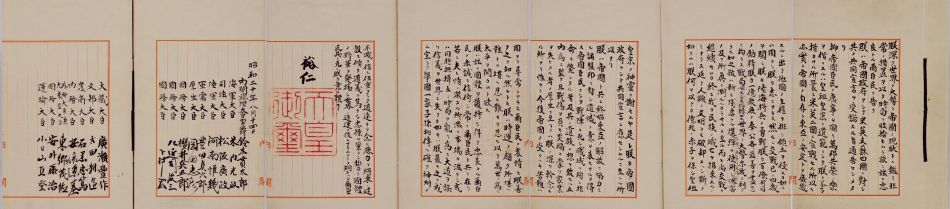 朕深ク世界ノ大勢ト帝國ノ現狀トニ鑑ミ非
常ノ措置ヲ以テ時局ヲ收拾セムト欲シ茲ニ忠
良ナル爾臣民ニ告ク
朕ハ帝國政府ヲシテ米英支蘇四國ニ對シ其ノ
共同宣言ヲ受諾スル旨通告セシメタリ
抑〻帝國臣民ノ康寧ヲ圖リ萬邦共榮ノ樂
ヲ偕ニスルハ皇祖皇宗ノ遺範ニシテ朕ノ拳々
措カサル所曩ニ米英二國ニ宣戰セル所以モ亦
實ニ帝國ノ自存ト東亞ノ安定トヲ庶幾
スルニ出テ他國ノ主權ヲ排シ領土ヲ侵スカ如キ
ハ固ヨリ朕カ志ニアラス然ルニ交戰已ニ四歲
ヲ閲シ朕カ陸海將兵ノ勇戰朕カ百僚有司
ノ勵精朕カ一億衆庶ノ奉公各〻最善ヲ盡セル
ニ拘ラス戰局必スシモ好轉セス世界ノ大勢亦我
ニ利アラス加之敵ハ新ニ殘虐ナル爆彈ヲ使用シ
如クムハ朕何ヲ以テカ億兆ノ赤子ヲ保シ皇祖
皇宗ノ神靈ニ謝セムヤ是レ朕カ帝國
政府ヲシテ共同宣言ニ應セシムルニ至レル所
以ナリ
朕ハ帝國ト共ニ終始東亞ノ解放ニ協力セル
諸盟邦ニ對シ遺憾ノ意ヲ表セサルヲ得
ス帝國臣民ニシテ戰陣ニ死シ職域ニ殉シ非
命ニ斃レタル者及其ノ遺族ニ想ヲ致セハ五
內爲ニ裂ク且戰傷ヲ負ヒ災禍ヲ蒙リ家
業ヲ失ヒタル者ノ厚生ニ至リテハ朕ノ深ク軫念
スル所ナリ惟フニ今後帝國ノ受クヘキ苦難ハ
固ヨリ尋常ニアラス爾臣民ノ衷情モ朕善ク
之ヲ知ル然レトモ朕ハ時運ノ趨ク所堪ヘ
難キヲ堪ヘ忍ヒ難キヲ忍ヒ以テ萬世ノ爲ニ
太平ヲ開カムト欲ス
朕ハ茲ニ國體ヲ護持シ得テ忠良ナル爾臣民
ノ赤誠ニ信倚シ常ニ爾臣民ト共ニ在リ
宜シク擧國一家子孫相傳ヘ確ク神州ノ
不滅ヲ信シ任重クシテ道遠キヲ念ヒ總力ヲ將來ノ建
設ニ傾ケ道義ヲ篤クシ志操ヲ鞏クシ誓テ國體
ノ精華ヲ發揚シ世界ノ進運ニ後レサラムコトヲ期スヘシ爾臣
民其レ克ク朕カ意ヲ體セヨ
裕仁
天皇御璽
昭和二十年八月十四日
內閣總理大臣男爵鈴木貫太郎
海軍大臣 米內光政
司法大臣 松阪廣政
陸軍大臣 阿南惟幾
軍需大臣 豊田貞次郎
厚生大臣 岡田忠彦
國務大臣 櫻井兵五郎
國務大臣 左近司政三
國務大臣 下村宏
大藏大臣 廣瀨豐作
文部大臣 太田耕造
農商大臣 石黑忠篤
內務大臣 安倍源基
外務大臣兼大東亞大臣 東鄕茂德
國務大臣 安井藤治
運輸大臣 小日山直登